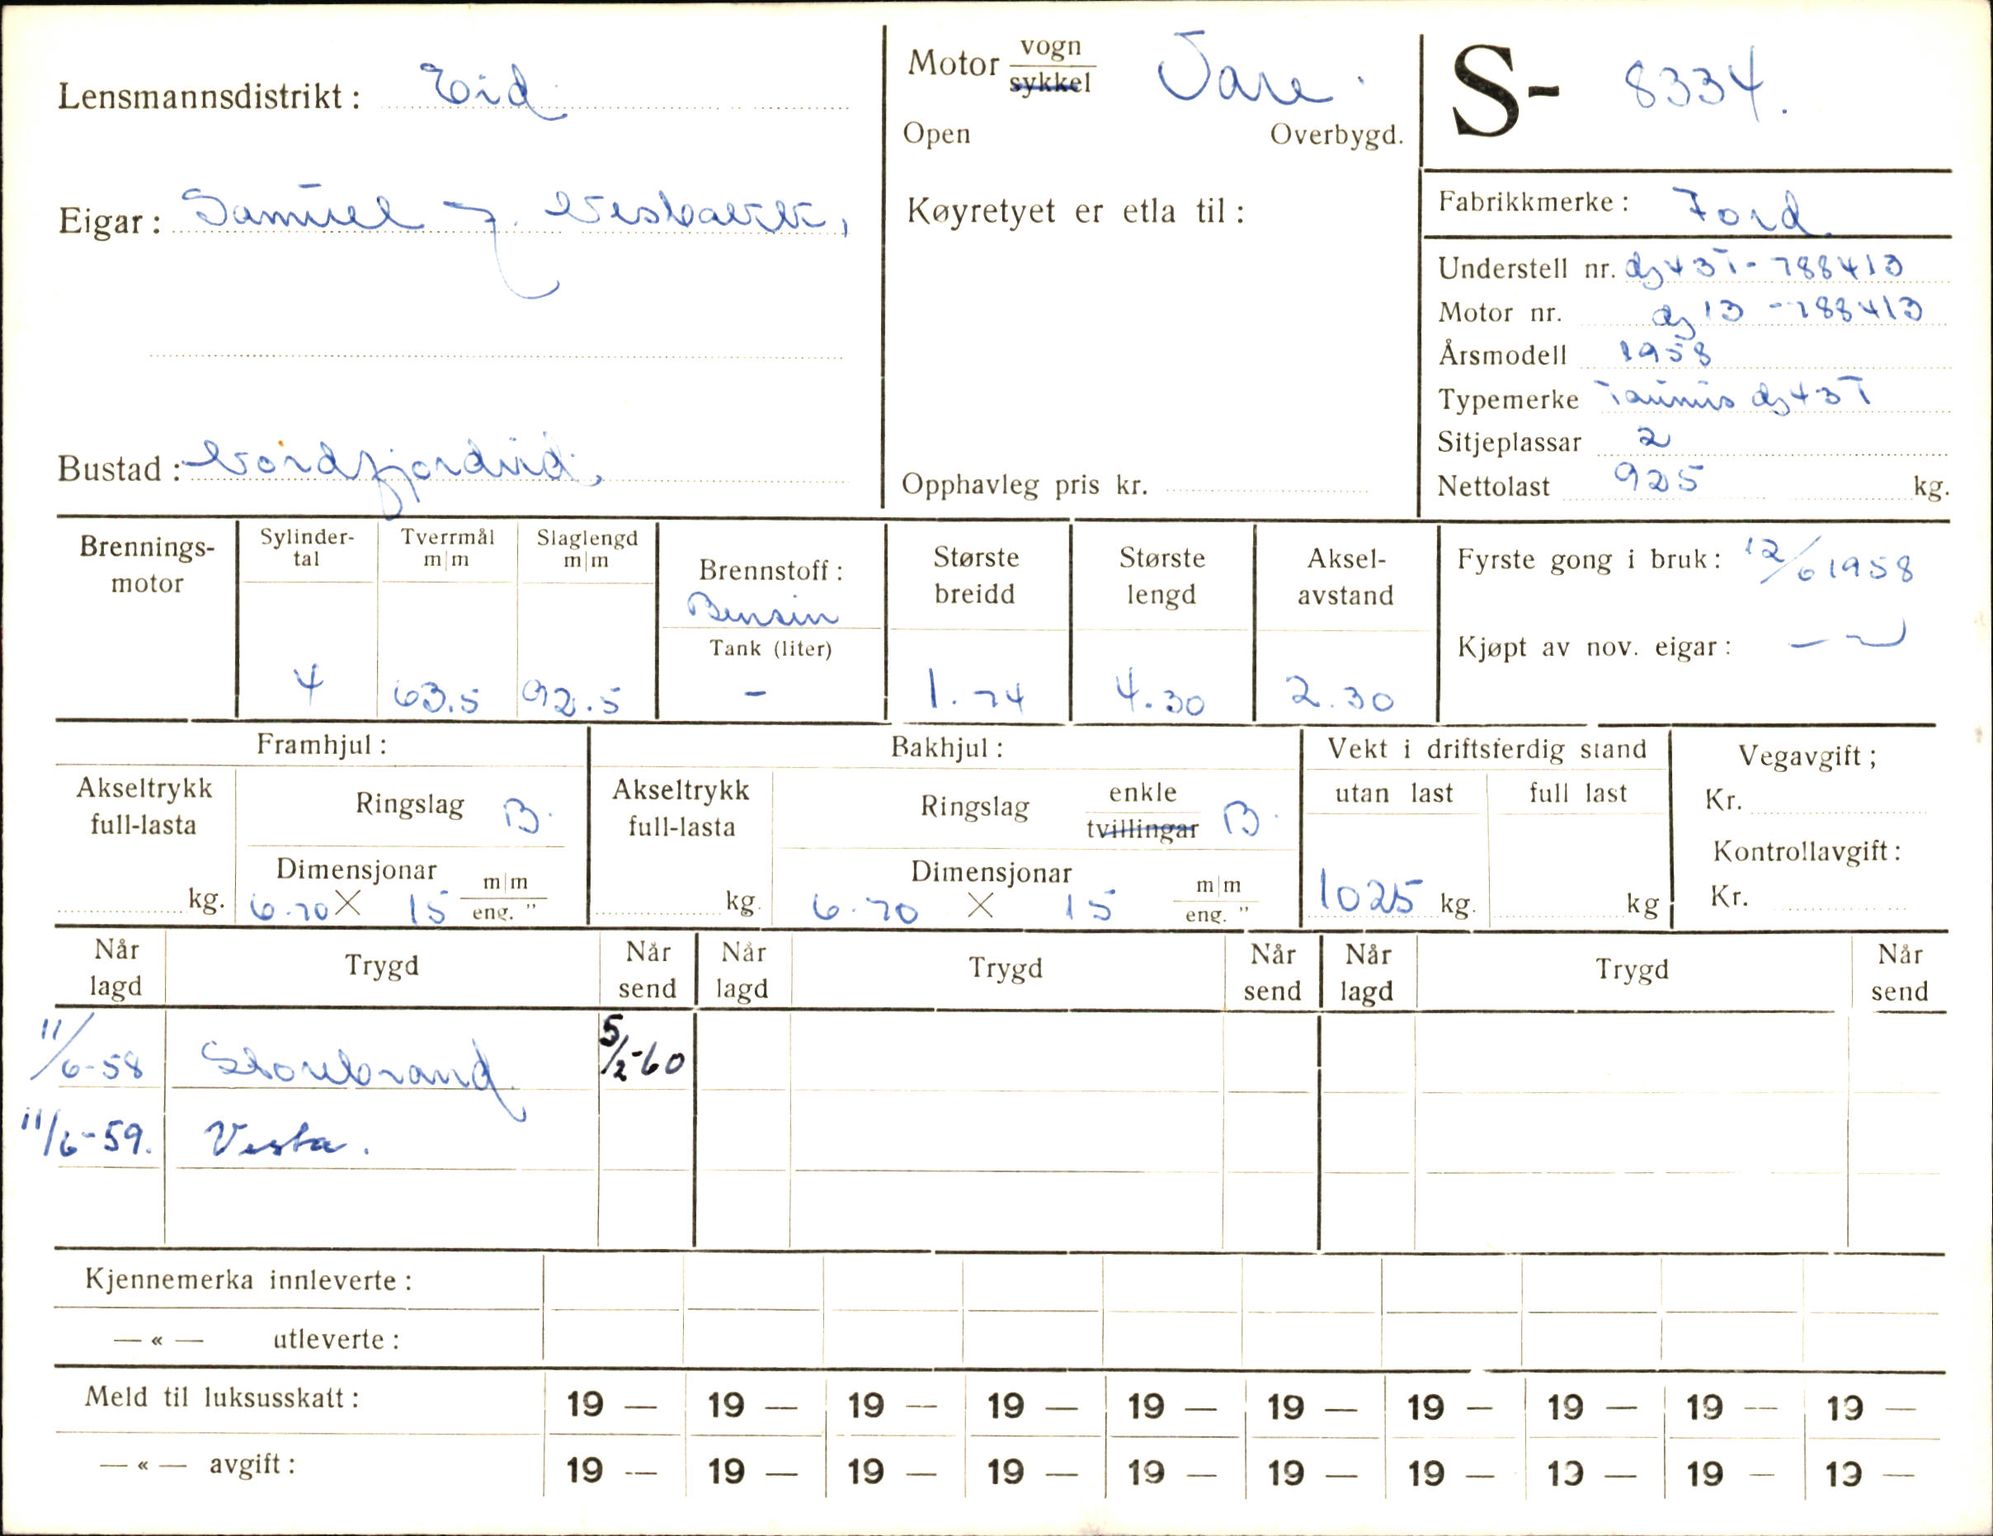 Lensmannsdistrikt: Eid
Motor vogn sykkel Vare.
Open Overbygd.
S- 8334.
Eigar: Samuel J.
Køyretyet er etla til:
Fabrikkmerke: Ford
Understell nr. dg43T-788413
Motor nr. dg 13 -788413
Årsmodell 1958
Typemerke Taunus dg43T
Sitjeplassar 2
Bustad: Nordfjordeid.
Opphavleg pris kr.
Nettolast 925 kg.
Brennings-motor
Sylinder-tal 4
Tverrmål m|m 63.5
Slaglengd m|m 92.5
Brennstoff: Bensin
Tank (liter) -
Største breidd 1.74
Største lengd 4.30
Aksel-avstand 2.30
Fyrste gong i bruk: 12/6 1958
Kjøpt av nov. eigar: — ~
Framhjul:
Akseltrykk full-lasta kg.
Ringslag B.
Dimensjonar 6.70 X 15 m|m eng. "
Bakhjul:
Akseltrykk full-lasta kg.
Ringslag enkle tvillingar B.
Dimensjonar 6.70 X 15 m|m eng. "
Vekt i driftsferdig stand
utan last 1025 kg.
full last kg
Vegavgift;
Kr.
Kontrollavgift:
Kr.
Når lagd Trygd Når send Når lagd Trygd Når send Når lagd Trygd Når send
11/6-58 Storebrand 5/2-60
11/6-59. Vesta.
Kjennemerka innleverte:
— « — utleverte:
Meld til luksusskatt: 19 — 19 — 19 — 19 — 19 — 19 — 19 — 19 — 19 — 19 —
— « — avgift: 19 — 19 — 19 — 19 — 19 — 19 — 19 — 19 — 19 — 19 —